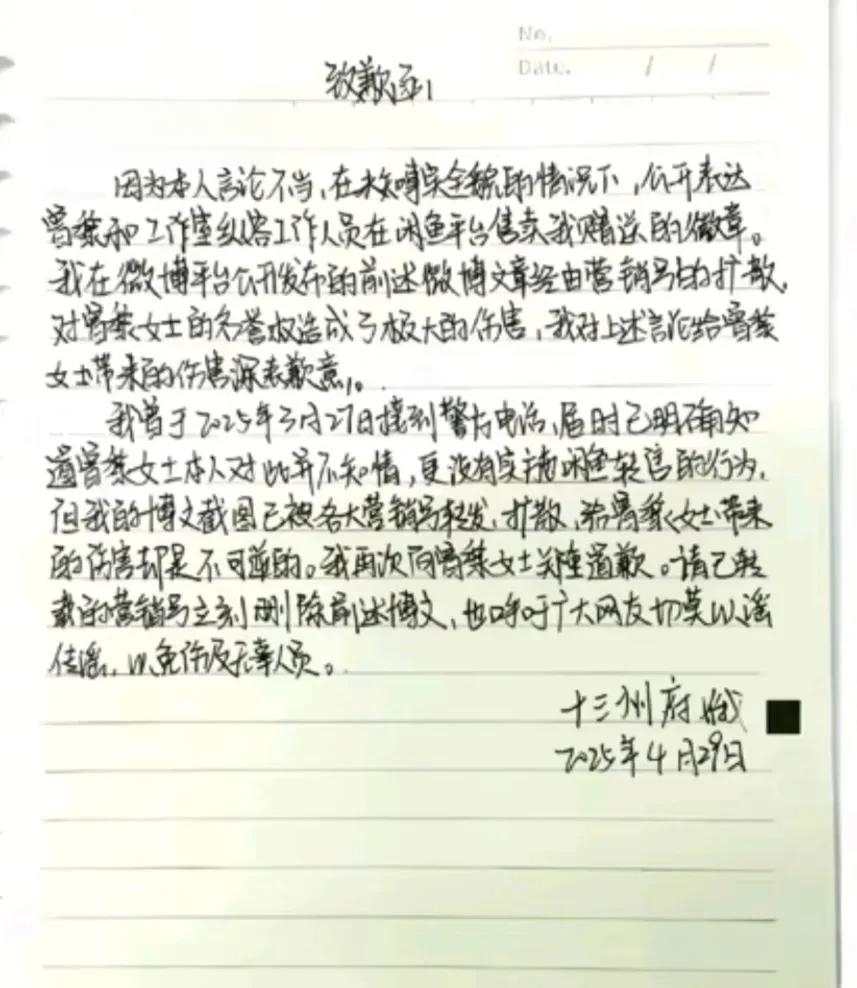 No.
Date. / /
致歉函
因为本人言论不当,在未核实全貌的情况下,公开表达
曾黎和工作室纵容工作人员在闲鱼平台售卖我赠送的徽章。
我在微博平台公开发布的前述微博文章经由营销号的扩散,
对曾黎女士的名誉权造成了极大的伤害,我对上述言论给曾黎
女士带来的伤害深表歉意。
我曾于2025年3月27日接到警方电话,届时已明确知
道曾黎女士本人对此并不知情,更没有实施闲鱼转售的行为,
但我的博文截图已被各大营销号转发、扩散,给曾黎女士带来
的伤害却是不可逆的。我再次向曾黎女士郑重道歉。请已转
载的营销号立刻删除前述博文,也呼吁广大网友切莫以谣
传谣,以免伤及无辜人员。
十三州府
2025年4月29日